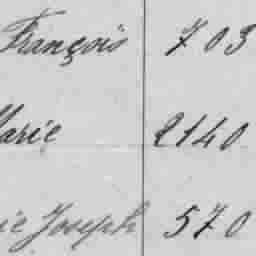 François 703
Marie 2140
ie Joseph 570